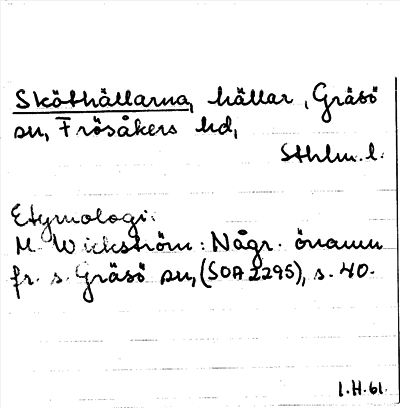 Sköthällarna, hällar, Gräsö
sn, Frösåkers hd,
Sthlm. l.
Etymologi:
M Wickström: Någr. önamn
fr. s. Gräsö sn, (SOA 2295), s. 40.
I.H.61.